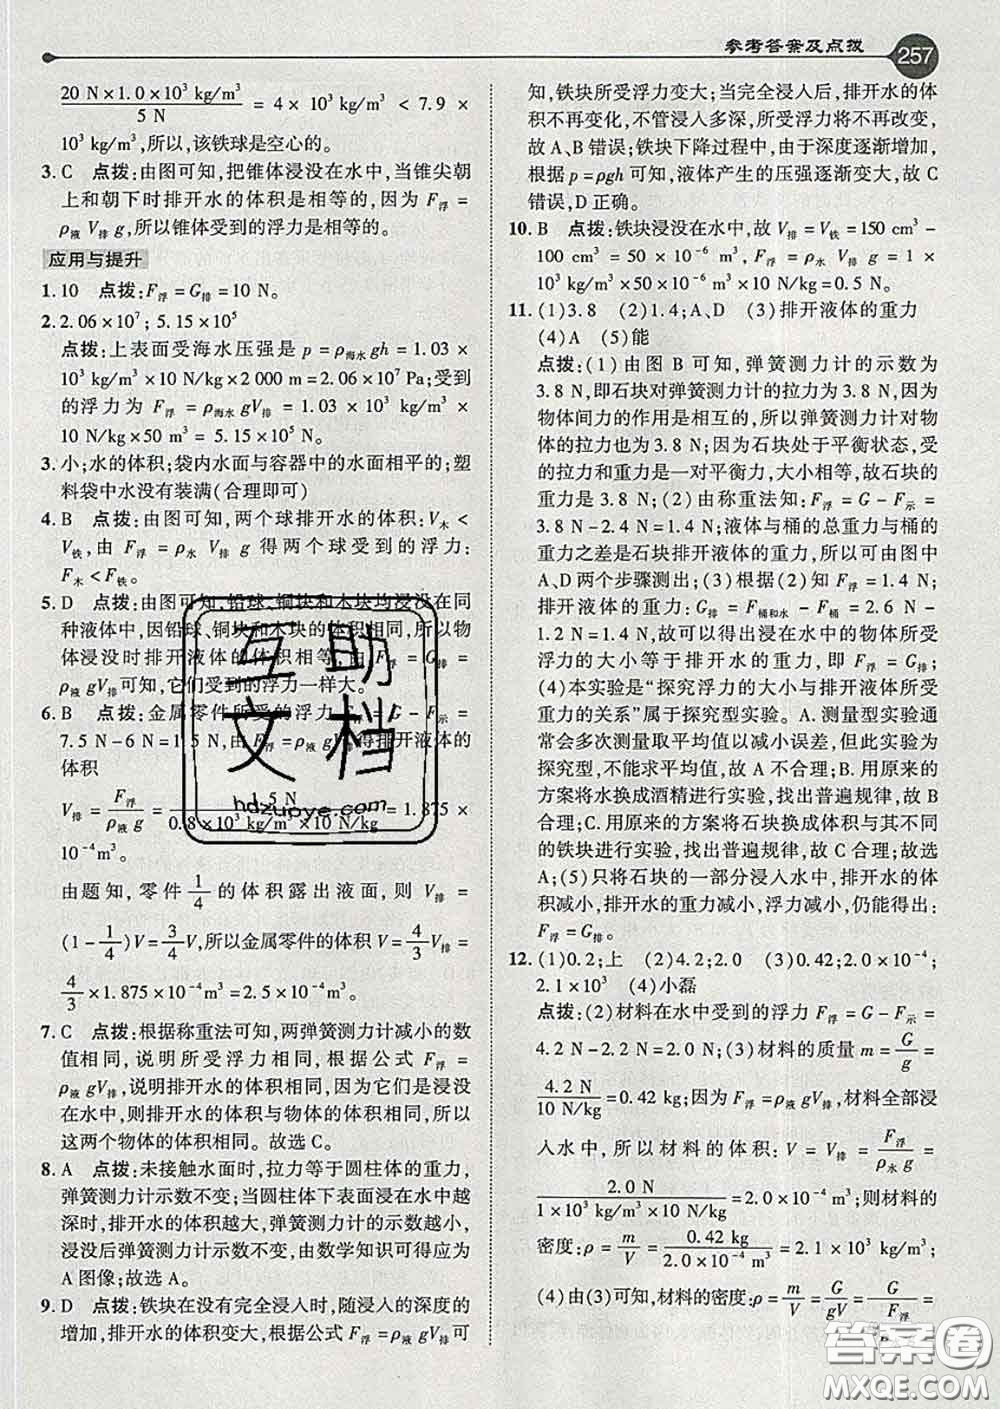 参考答案及点拨 257
20 N×1.0×10³ kg/m³ / 5 N = 4× 10³ kg/m³ < 7.9 ×
10³ kg/m³,所以,该铁球是空心的。
3. C 点拨:由图可知,把锥体浸没在水中,当锥尖朝
上和朝下时排开水的体积是相等的。可知 F浮 =
ρ液 V排 g,所以锥体受到的浮力是相等的。
应用与提升
1. 10 点拨:F浮=G排=10 N。
2. 2.06×10⁷;5.15×10⁵
点拨:上表面受海水压强是 p=ρ海水gh=1.03 ×
10³ kg/m³×10 N/kg×2 000 m=2.06×10⁷ Pa;受到
的浮力为 F浮 = ρ海水 gV排 = 1.03 × 10³ kg/m³ ×
10 N/kg×50 m³ = 5.15×10⁵ N。
3. 小;水的体积;袋内水面与容器中的水面相平的;塑
料袋中水没有装满(合理即可)
4. B 点拨:由图可知,两个球排开水的体积:V木 <
V铁,由 F浮 = ρ水 V排 g 得两个球受到的浮力:
F木<F铁。
5. D 点拨:由图可知,铅球、铜块和木块均浸没在同
种液体中,因铅球、铜块和木块的体积相同,所以物
体浸没时排开液体的体积相等,由 F浮 = G排 =
ρ液gV排可知,它们受到的浮力一样大。
6. B 点拨:金属零件所受的浮力 F浮 = G - F示 =
7.5 N-6 N=1.5 N,由 F浮=ρ液 gV排得排开液体的
体积
V排 = F浮 / ρ液 g = 1.5 N / 0.8×10³ kg/m³×10 N/kg = 1.875 ×
10⁻⁴m³。
由题知,零件 1/4 的体积露出液面,则 V排 =
(1-1/4)V=3/4V,所以金属零件的体积V=4/3V排 =
4/3×1.875×10⁻⁴m³=2.5×10⁻⁴m³。
7. C 点拨:根据称重法可知,两弹簧测力计减小的数
值相同,说明所受浮力相同,根据公式 F浮 =
ρ液 gV排,说明排开水的体积相同,因为它们是浸没
在水中,则排开水的体积与物体的体积相同,所以
这两个物体的体积相同。故选 C。
8. A 点拨:未接触水面时,拉力等于圆柱体的重力,
弹簧测力计示数不变;当圆柱体下表面浸在水中越
深时,排开水的体积越大,弹簧测力计的示数越小,
浸没后弹簧测力计示数不变,由数学知识可得应为
A 图像;故选 A。
9. D 点拨:铁块在没有完全浸入时,随浸入的深度的
增加,排开水的体积变大,根据公式 F浮=ρ液gV排可
知,铁块所受浮力变大;当完全浸入后,排开水的体
积不再变化,不管浸入多深,所受浮力将不再改变,
故 A、B 错误;铁块下降过程中,由于深度逐渐增加,
根据 p=ρgh 可知,液体产生的压强逐渐变大,故 C
错误,D 正确。
10. B 点拨:铁块浸没在水中,故 V排=V铁=150 cm³-
100 cm³ = 50 × 10⁻⁶ m³,F浮=ρ水 V排 g = 1 ×
10³ kg/m³×50×10⁻⁶ m³×10 N/kg=0.5 N。
11. (1)3.8 (2)1.4;A、D (3)排开液体的重力
(4)A (5)能
点拨:(1)由图 B 可知,弹簧测力计的示数为
3.8 N,即石块对弹簧测力计的拉力为 3.8 N,因为
物体间力的作用是相互的,所以弹簧测力计对物
体的拉力也为 3.8 N;因为石块处于平衡状态,受
的拉力和重力是一对平衡力,大小相等,故石块的
重力是 3.8 N;(2)由称重法知:F浮 = G - F示 =
3.8 N-2.4 N=1.4 N;液体与桶的总重力与桶的
重力之差是石块排开液体的重力,所以可由图中
A、D 两个步骤测出;(3)根据(2)知 F浮=1.4 N;
排开液体的重力:G排 = F桶和水 - F桶 = 2.6 N-
1.2 N=1.4 N;故可以得出浸在水中的物体所受
浮力的大小等于排开水的重力,即 F浮 = G排;
(4)本实验是“探究浮力的大小与排开液体所受
重力的关系”属于探究型实验。A. 测量型实验通
常会多次测量取平均值以减小误差,但此实验为
探究型,不能求平均值,故 A 不合理;B. 用原来的
方案将水换成酒精进行实验,找出普遍规律,故 B
合理;C. 用原来的方案将石块换成体积与其不同
的铁块进行实验,找出普遍规律,故 C 合理;故选
A;(5)只将石块的一部分浸入水中,排开水的体
积减小,排开水的重力减小,浮力减小,仍能得出:
F浮=G排。
12. (1)0.2;上 (2)4.2;2.0 (3)0.42;2.0×10⁻⁴;
2.1×10³ (4)小磊
点拨:(2)材料在水中受到的浮力 F浮=G-F示=
4.2 N-2.2 N=2.0 N;(3)材料的质量 m=G/g=
4.2 N / 10 N/kg=0.42 kg;因为 F浮=ρ液 gV排,材料全部浸
入水中,所以材料的体积:V = V排 = F浮 / ρ水 g =
2.0 N / 1×10³ kg/m³×10 N/kg=2.0×10⁻⁴ m³;则材料的
密度:ρ = m/V = 0.42 kg / 2.0×10⁻⁴ m³ = 2.1×10³ kg/m³;
(4)由(3)可知,材料的密度:ρ=m/V=G/gV=G / F浮 =
互助
文档
hdzuoye.com
答案圈
MXQE.COM